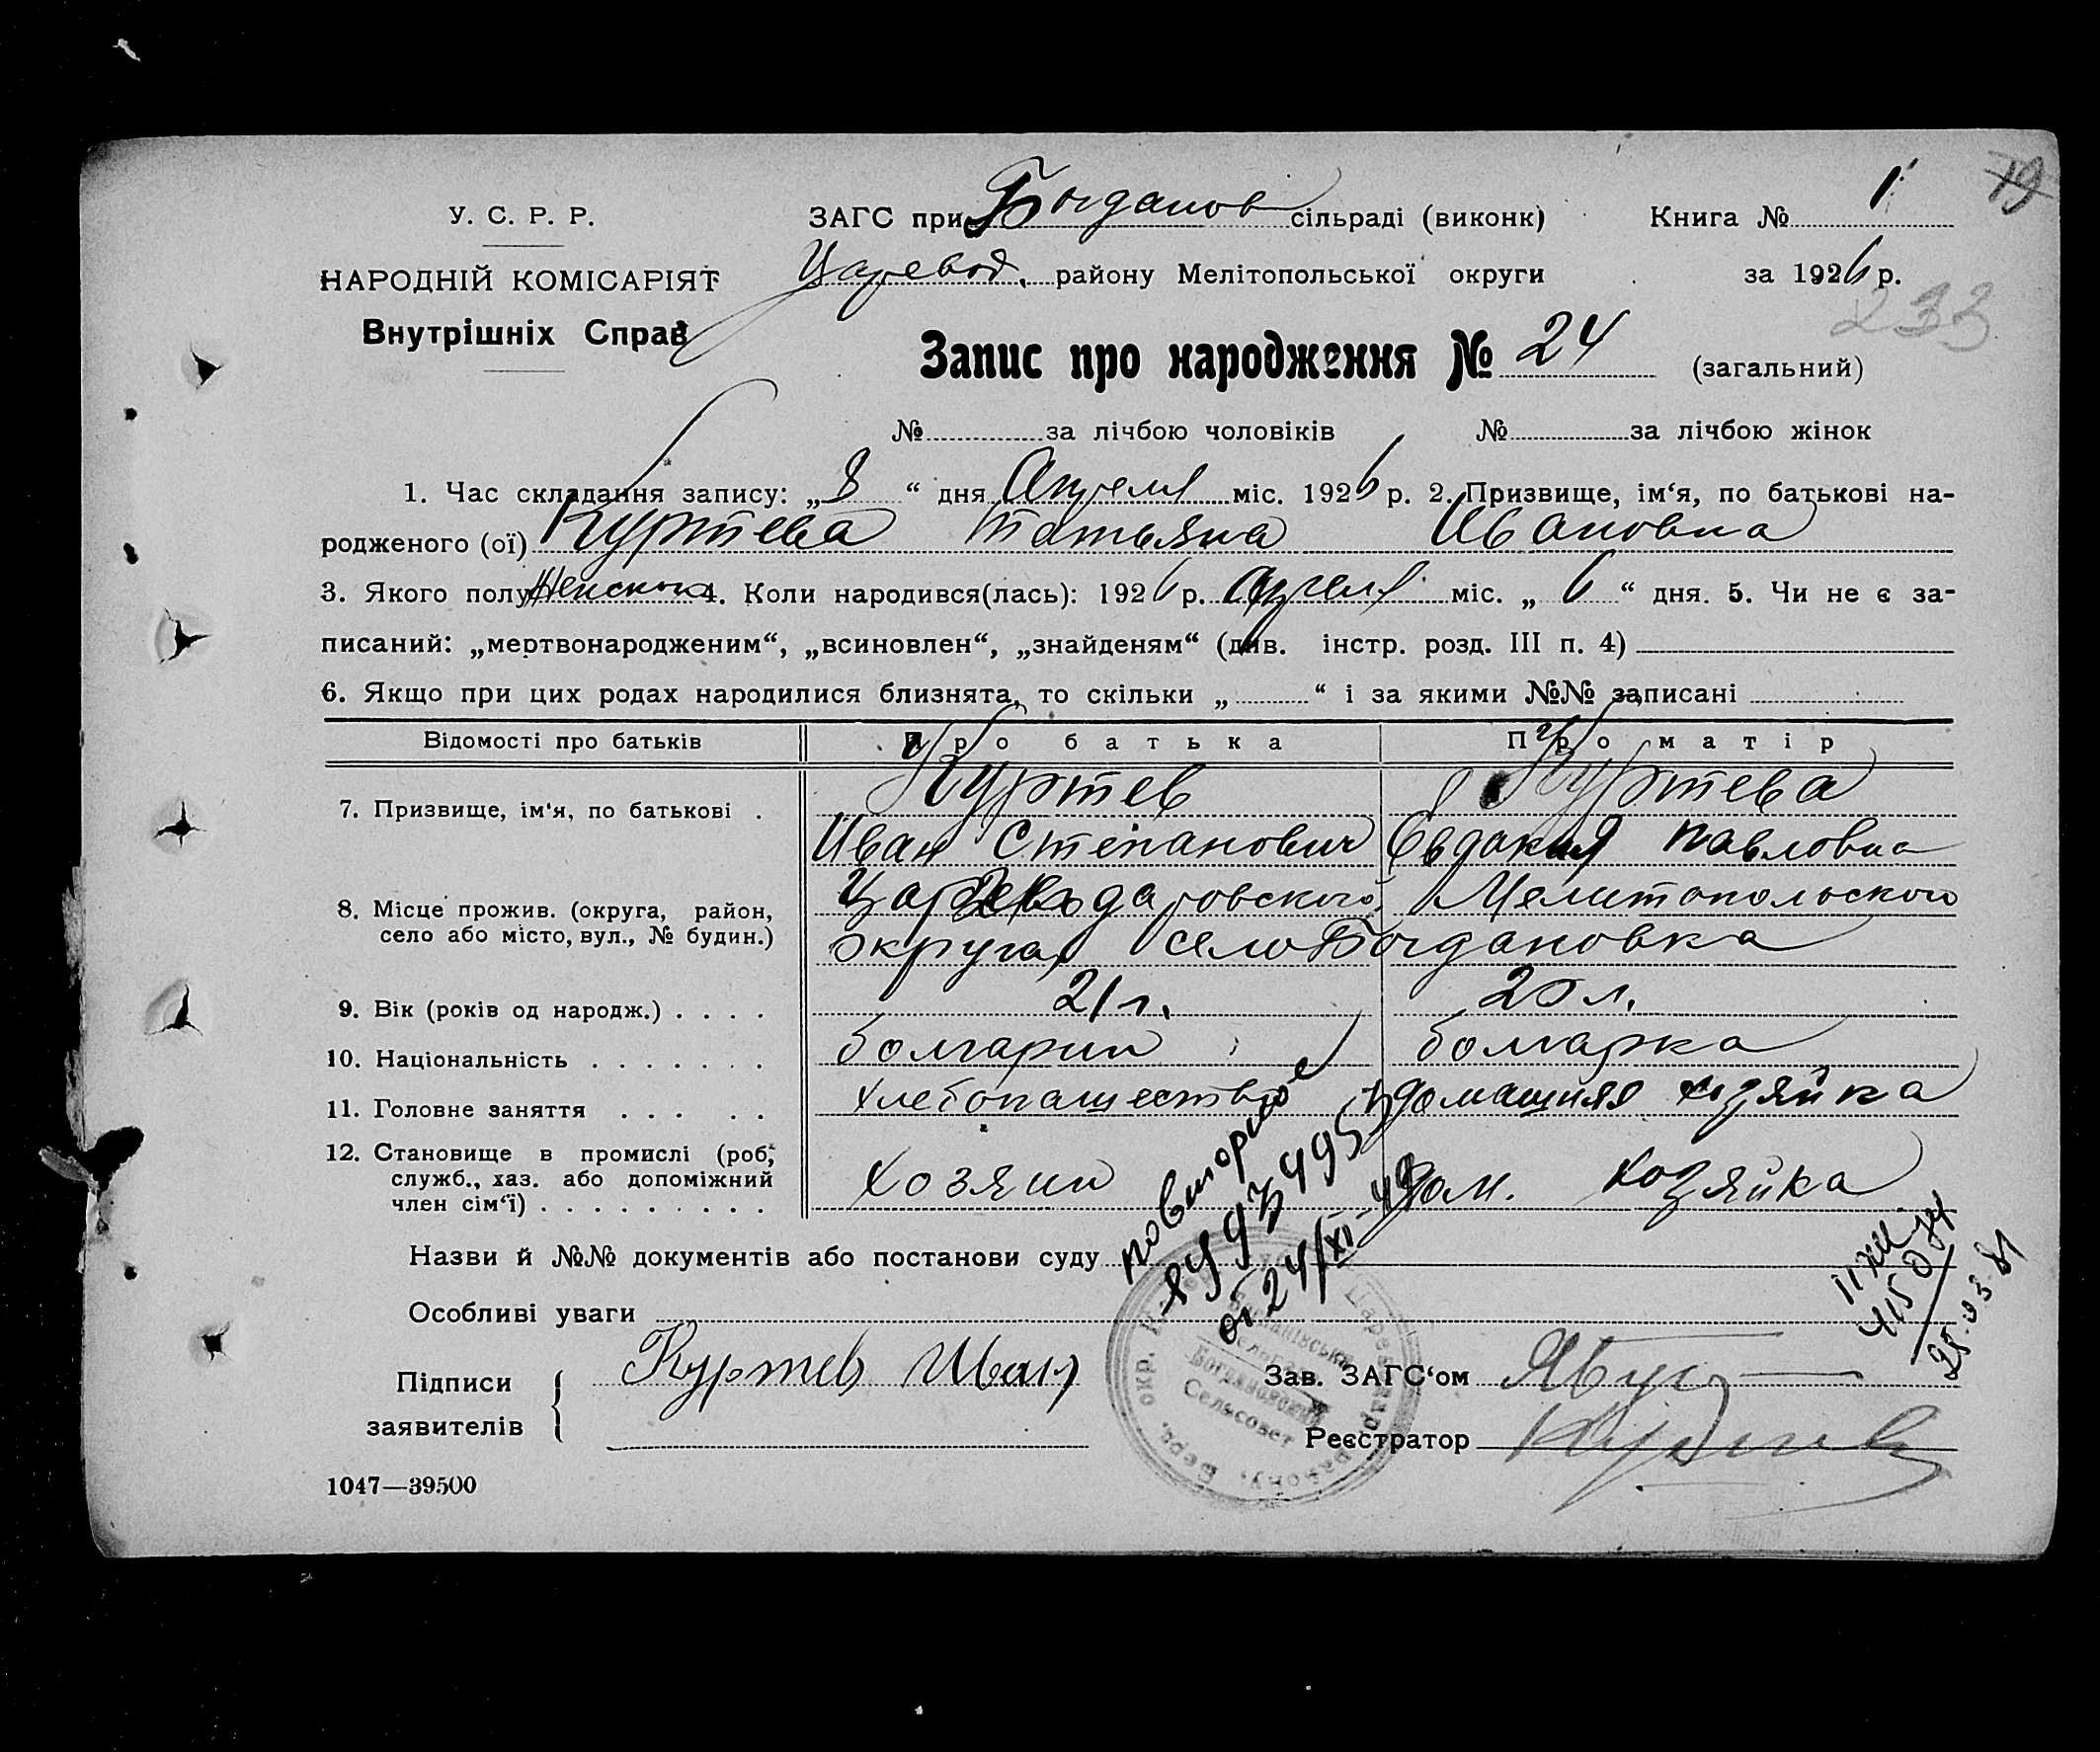 У. С. Р. Р.
НАРОДНІЙ КОМІСАРІЯТ
Внутрішніх Справ
ЗАГС при Богданов сільраді (виконк)
Книга № 1
19
Царевод. району Мелітопольської округи
за 1926 р.
233
Запис про народження № 24 (загальний)
№ за лічбою чоловіків № за лічбою жінок
1. Час складання запису: „8“ дня Апреля міс. 1926 р. 2. Призвище, ім‘я, по батькові на-
родженого (ої) Куртева Татьяна Ивановна
3. Якого полу Женского 4. Коли народився(лась): 1926 р. Апреля міс. „6“ дня. 5. Чи не є за-
писаний: „мертвонародженим“, „всиновлен“, „знайденям“ (див. інстр. розд. III п. 4)
6. Якщо при цих родах народилися близнята, то скільки „ “ і за якими №№ записані
Відомості про батьків Про батька Про матір
7. Призвище, ім'я, по батькові . Куртев Куртева
Иван Степанович Евдокия Павловна
8. Місце прожив. (округа, район,
село або місто, вул., № будин.)
Мелитопольского
округа село Богдановка
9. Вік (років од народж.) . . . . 21 г. 20 л.
10. Національність . . . . . . . болгарин болгарка
11. Головне заняття . . . . . хлебопашество домашняя хозяйка
12. Становище в промислі (роб,
служб., хаз. або допоміжний
член сім‘ї) . . . . . . . . . хозяин дом. хозяйка
повторное
от 24/XI-49
Назви й №№ документів або постанови суду
Особливі уваги
25.03.81
Підписи
заявителів
Куртев Иван
Зав. ЗАГС‘ом
Реєстратор
Богдановский
Сельсовет
1047—39500